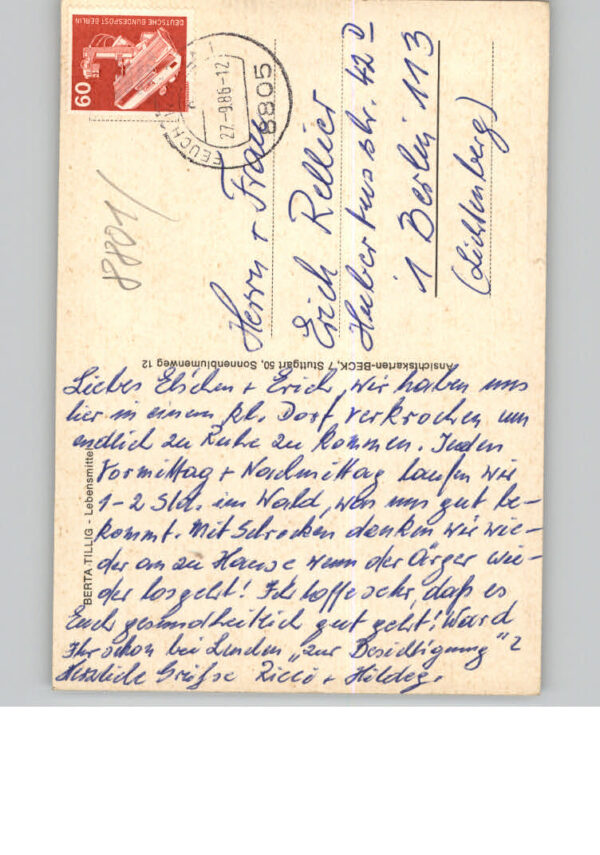 DEUTSCHE BUNDESPOST BERLIN
60
27.-9.86-12
8805
8801/
Herrn + Frau
Erich Rellier
Hubertusstr. 42 D
1 Berlin 113
(Lichtenberg)
Ansichtskarten-BECK, 7 Stuttgart 50, Sonnenblumenweg 12
BERTA TILLIG - Lebensmittel
Liebes Elschen + Erich, wir haben uns
hier in einem kl. Dorf verkrochen um
endlich zu Ruhe zu kommen. Jeden
Vormittag + Nachmittag laufen wir
1-2 Std. im Wald, was uns gut be-
kommt. Mit Schrecken denken wir wie-
der an zu Hause wenn der Ärger wie-
der losgeht! Ich hoffe sehr, daß es
Euch gesundheitlich gut geht! Ward
Ihr schon bei "zur Besichtigung"?
Herzliche Grüße Ricci + Hildeg.